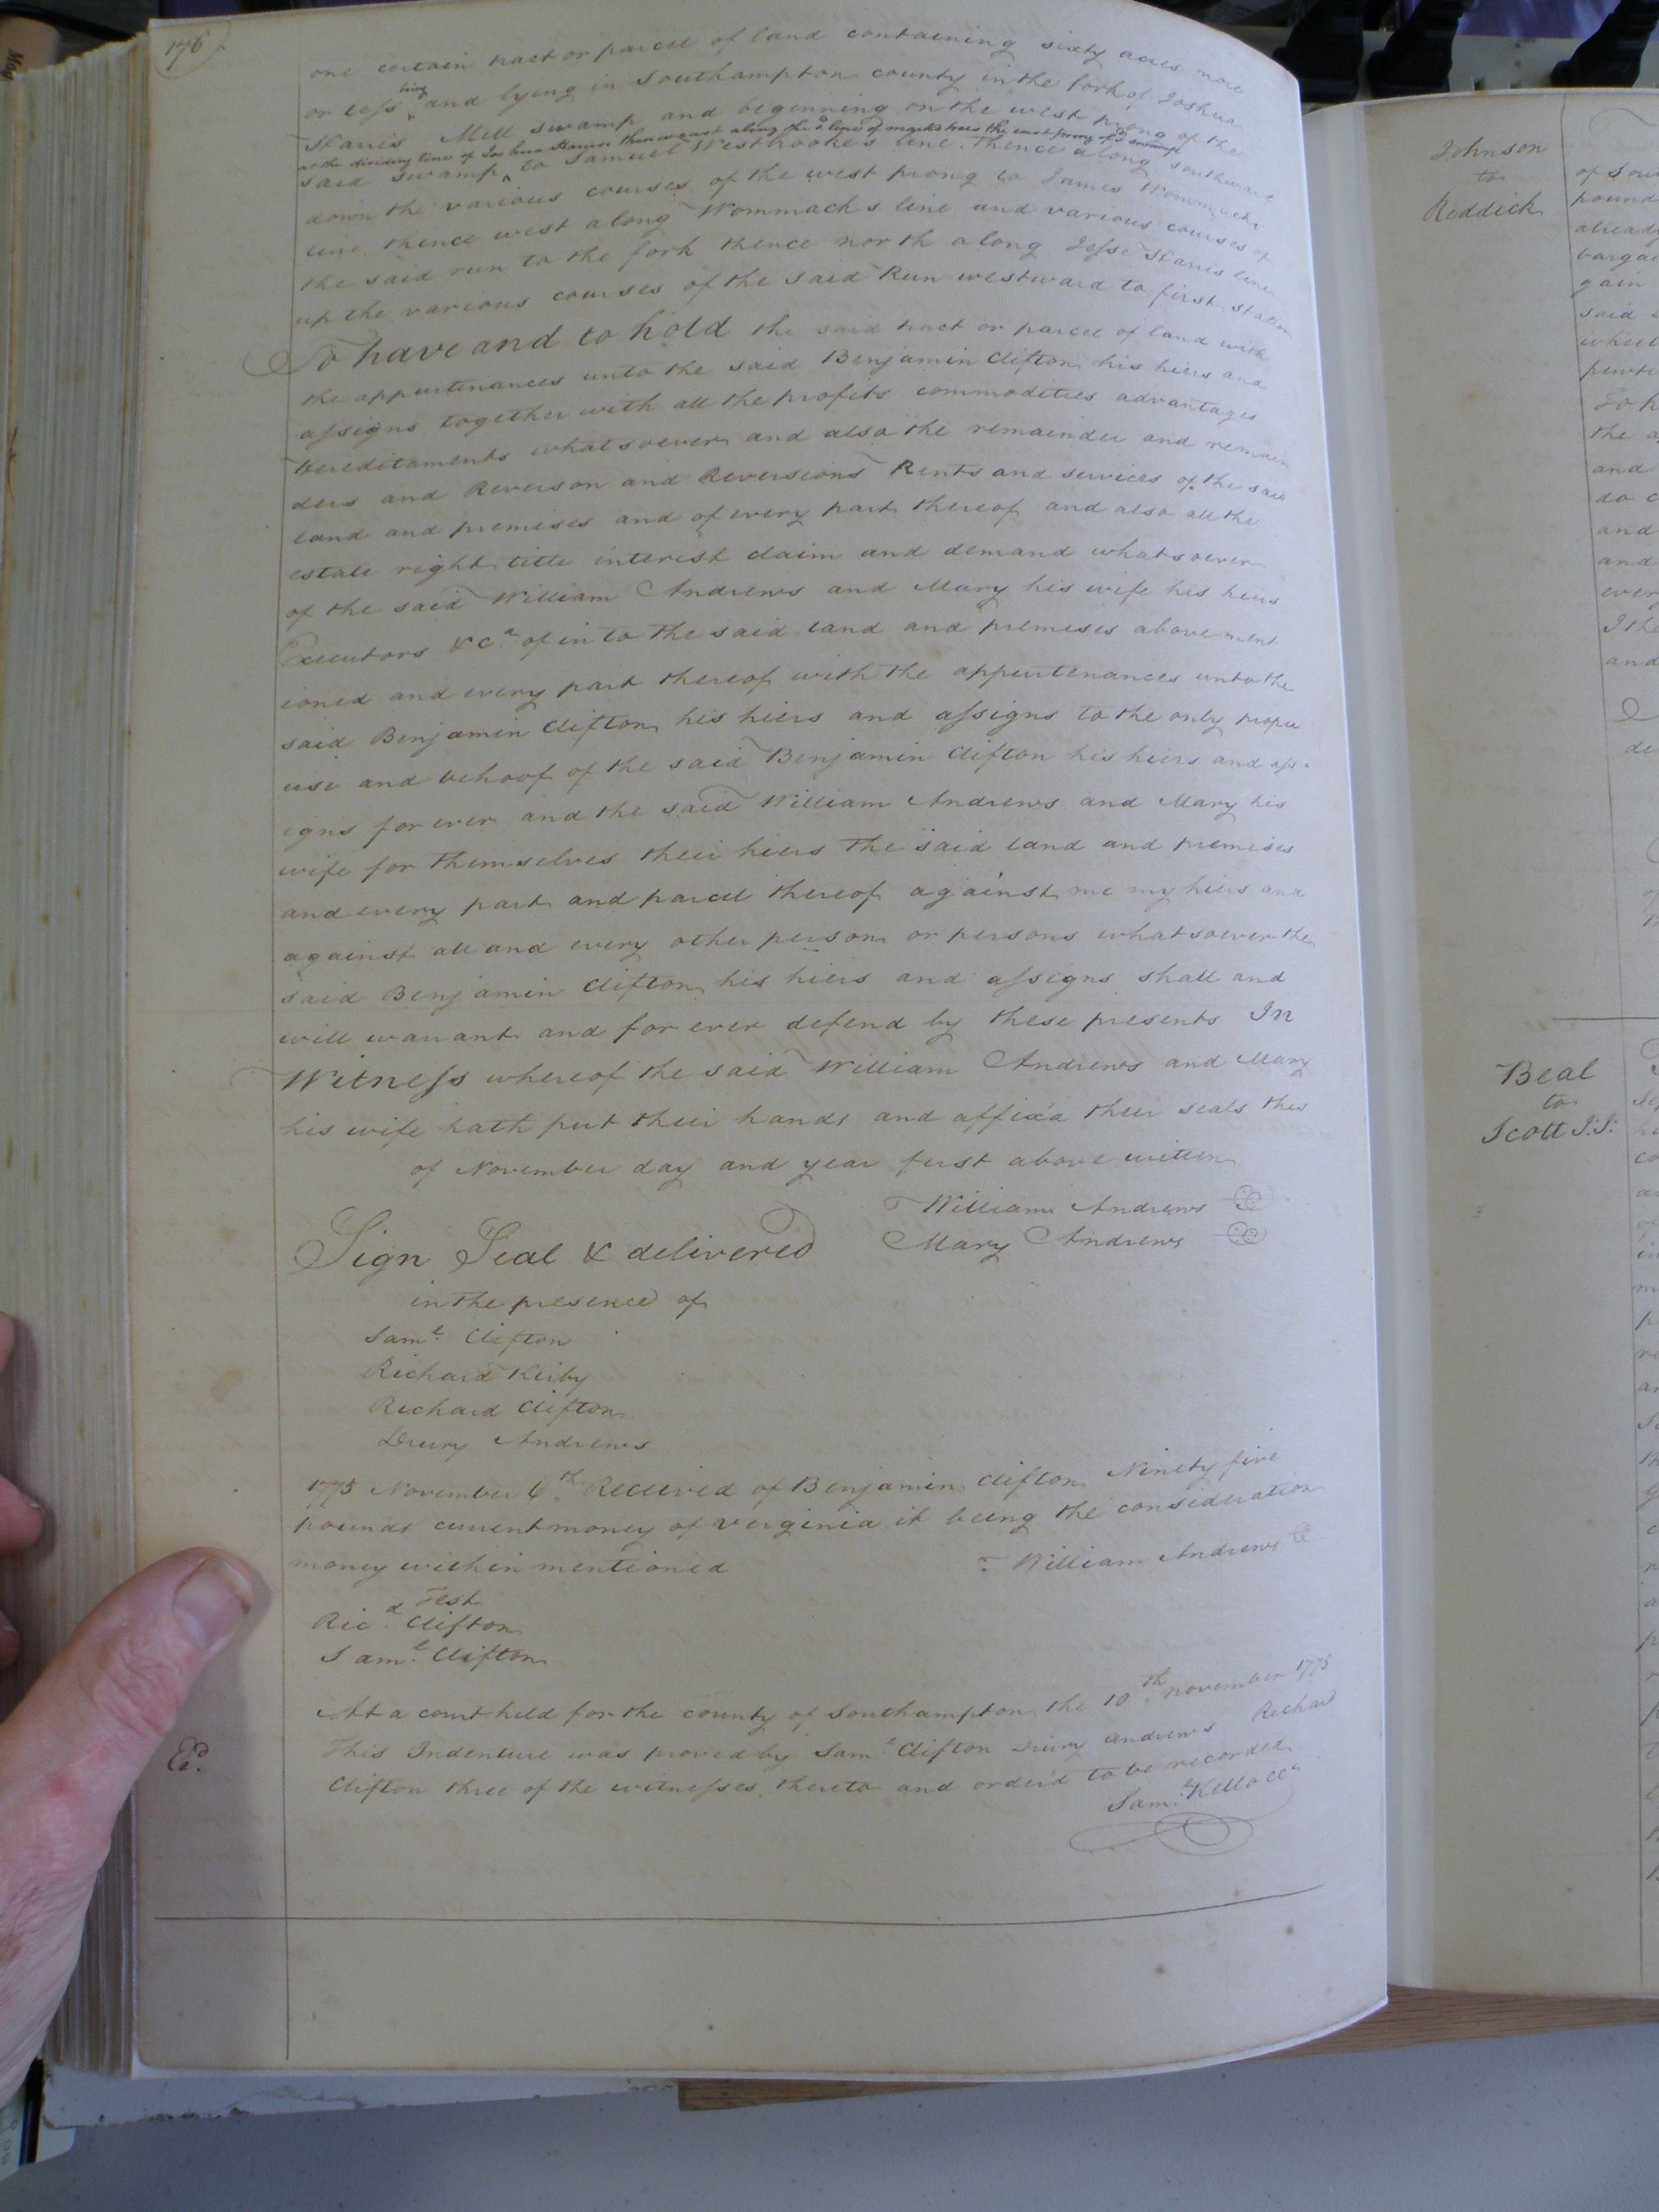 176
one certain tract or parcel of land containing sixty acres more
or less being and lying in Southampton county in the fork of Joshua
Mill swamp and beginning on the west prong of the
at the dividing line of Joshua thence east along the line of marked trees the east prong of sd swamp
said swamp to Samuel Westbrooke's line. Thence along southward
down the various courses of the west prong to James Wommack's
line thence west along Wommack's line and various courses of
the said run to the fork thence north along Jesse line
up the various courses of the said Run westward to first station
To have and to hold the said tract or parcel of land with
the appurtenances unto the said Benjamin Clifton his hiers and
assigns together with all the profits commodities advantages
hereditaments whatsoever and also the remainder and remain
ders and Reverson and Reversions Rents and services of the said
land and premises and of every part thereof and also all the
estate right title interest claim and demand whatsoever
of the said William Andrews and Mary his wife his hiers
Executors &ca of in to the said land and premeses above ment
ioned and every part thereof with the appurtenances unto the
said Benjamin Clifton his hiers and assigns to the only proper
use and behoof of the said Benjamin Clifton his hiers and ass=
igns for ever and the said William Andrews and Mary his
wife for themselves their hiers The said land and premises
and every part and parcel thereof against me my hiers and
against all and every other person or persons whatsoever the
said Benjamin Clifton his hiers and assigns shall and
will warrant and for ever defend by these presents In
Witness whereof the said William Andrews and Mary
his wife hath put their hands and affix'd their seals this
of November day and year first above written
William Andrews
Mary Andrews
Sign Seal & delivered
in the presence of
Saml. Clifton
Richard Kirby
Richard Clifton
Drury Andrews
1775 November 6th. Received of Benjamin Clifton Ninety five
pounds current money of Verginia it being the consideration
money within mentioned
William Andrews
Test
Ricd. Clifton
Saml. Clifton
At a court held for the county of Southampton the 10th. November 1775
This Indenture was proved by Saml Clifton Drury Andrews Richard
Clifton three of the witnesses thereto and order'd to be recorded
Saml. Kello CC
Ed.
Johnson
to
Reddick
Beal
to
Scott J:J: